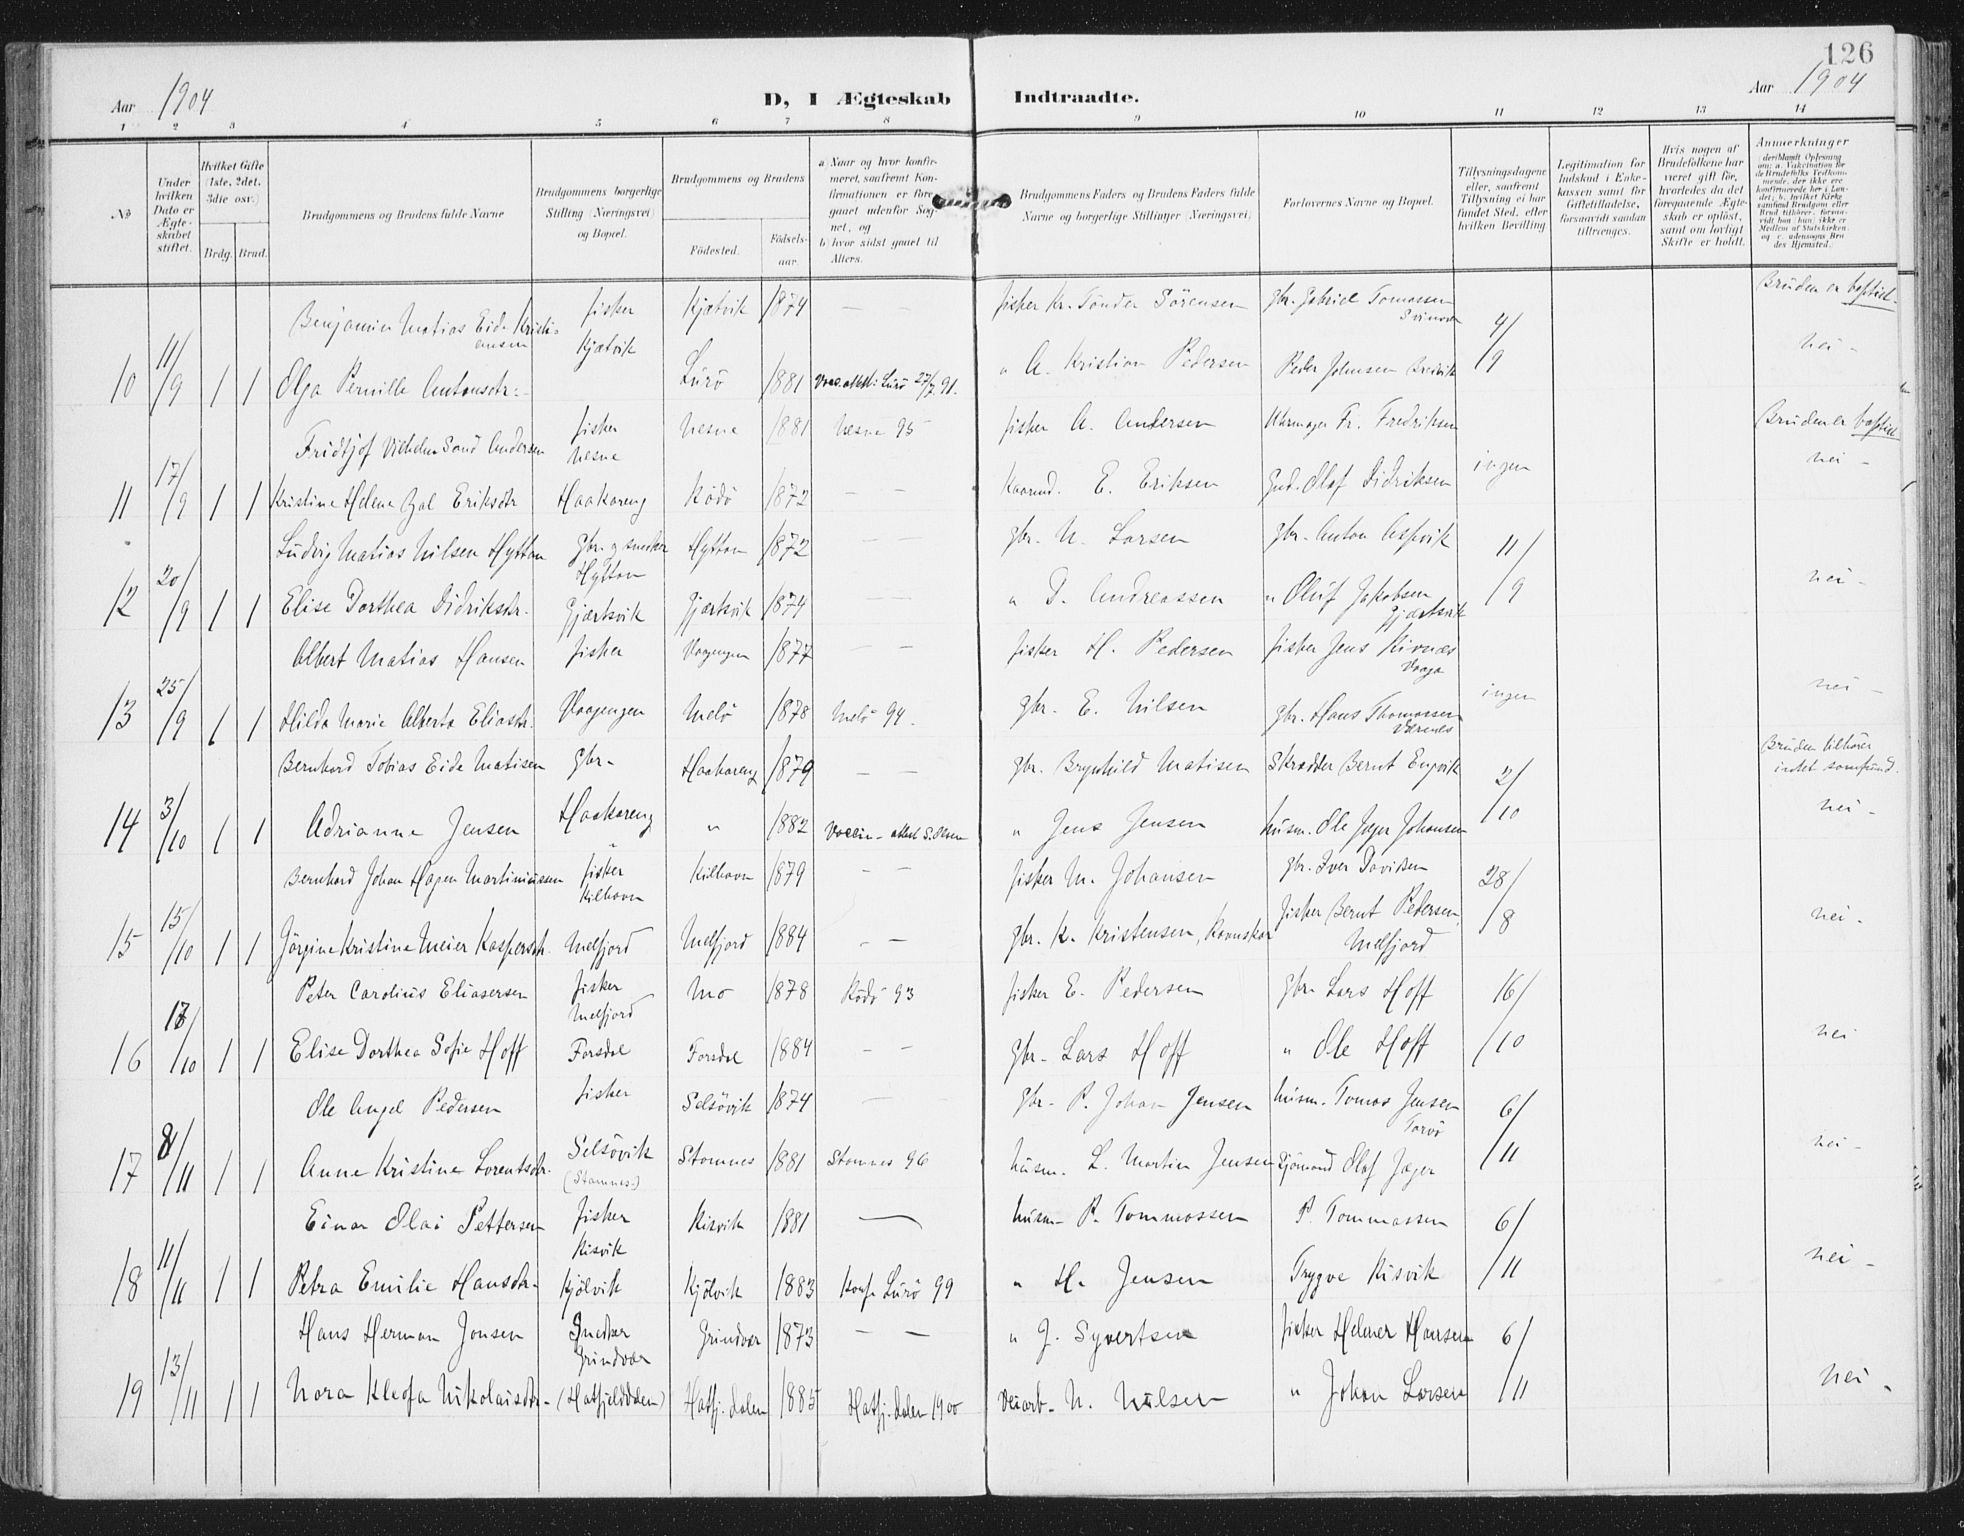 126
Aar 1904
D, I Ægteskab Indtraadte.
Aar 1904
1 2 3 4 5 6 7 8 9 10 11 12 13 14
No
Under hvilken Dato er Ægteskabet stiftet.
Hvilket Gifte (1ste, 2det, 3die osv.)
Brdg. Brud.
Brudgommens og Brudens fulde Navne
Brudgommens borgerlige Stilling (Næringsvei) og Bopæl.
Brudgommens og Brudens
Födested. Födselsaar.
a) Naar og hvor konfirmeret, saafremt Konfirmationen er foregaaet udenfor Sognet, og
b) hvor sidst gaaet til Alters.
Brudgommens Faders og Brudens Faders fulde Navne og borgerlige Stillinger (Næringsvei)
Forlovernes Navne og Bopæl.
Tillysningsdagene eller, saafremt Tillysning ei har fundet Sted, efter hvilken Bevilling
Legitimation for Indskud i Enkekassen samt for Giftetilladelse, forsaavidt saadan tiltrænges.
Hvis nogen af Brudefolkene har været gift för, hvorledes da det foregaaende Ægteskab er oplöst, samt om lovligt Skifte er holdt.
Anmærkninger
Benjamin Matias Eide Kristiansen fisker Kjætvik Kjætvik 1874 — — fisker Kr. Tönder Sörensen gbr. Gabriel Tomassen Bruden er baptist.
10 11/9 1 1 Olga Pernille Antonsdtr. Lurö 1881 Vacc.attst: Lurö 27/7 91. " A. Kristian Pedersen Peder Johnsen Breivik 4/9 nei -
Fridtjof Vilhelm Sand Andersen fisker Nesne Nesne 1881 Nesne 95 fisker A. Andersen Uhrmager Fr. Fredriksen Bruden er baptist
11 17/9 1 1 Kristine Helene Zal Eriksdtr Haakareng Rödö 1872 — — E. Eriksen Olaf Didriksen ingen nei -
Ludvig Matias Nilsen Hytten gbr. og snedker Hytten Hytten 1872 — — gbr. N. Larsen gbr. Anton Aspvik
12 20/9 1 1 Elise Dorthea Didriksdtr. Gjærtsvik Gjærtsvik 1874 — — " D. Andreassen " Oluf Jakobsen Gjærtsvik 11/9 nei -
Albert Matias Hansen fisker Vaagengen 1877 — — fisker H. Pedersen fisker Jens Kivnæs Vaaga
13 25/9 1 1 Hilda Marie Alberta Eliasdtr. Vaagengen Melö 1878 Melö 94. gbr. E. Nilsen gbr. Hans Thomassen Værnes ingen nei -
Bernhard Tobias Eide Matisen gbr. Haakareng 1879 — — gbr. Brynhild Matisen Skrædder Bernt Engvik Bruden tilhörer intet samfund.
14 3/10 1 1 Adrianne Jensen Haakareng " 1882 Vaccin-attest S. Olsen " Jens Jensen husm. Ole Jæger Johansen 2/10 nei -
Bernhard Johan Hagen Martiniussen fisker Kilhavn Kilhavn 1879 — — fisker M. Johansen gbr. Iver Davidsen
15 15/10 1 1 Jörgine Kristine Meier Kaspersdtr. Melfjord Melfjord 1884 — — gbr. K. Kristensen, Ravnskar fisker Bernt Pedersen, Melfjord 28/8 nei -
Peter Carolius Eliasersen fisker Melfjord Mo 1878 Rödö 93 fisker E. Pedersen gbr. Lars Hoff
16 /10 1 1 Elise Dorthea Sofie Hoff Forsdal Forsdal 1884 — — gbr. Lars Hoff " Ole Hoff 16/10 nei
Ole Angel Pedersen fisker Selsövik 1874 — — gbr. P. Johan Jensen husm. Tomas Jensen Torvö
17 8/11 1 1 Anne Kristine Lorentsdtr. Selsövik (Stamnes) Stamnes 1881 Stamnes 96 husm. L. Martin Jensen Sjömand Olaf Jæger 6/11 nei -
Einar Olai Pettersen fisker Kisvik Kisvik 1881 — husm. P. Tommassen P. Tommassen
18 11/11 1 1 Petra Emilie Hansdtr. Kjölvik Kjölvik 1883 Konf. Lurö 99 " H. Jensen Trygve Kisvik 6/11 nei -
Hans Herman Jonsen Snedker Grindvær Grindvær 1873 — — " J. Syvertsen fisker Helmer Hansen
19 13/11 1 1 Nora Kleofa Nikolaisdtr. (Hatfjelddalen) Hatfj.dalen 1885 Hatfj.dalen 1900 Veiarb. N. Nilsen " Johan Larsen 6/11 nei -